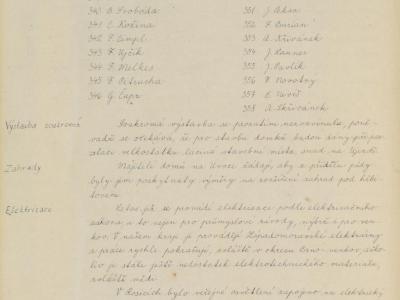 340 O. Svoboda
341 C. Kožina
342 F. Šempl
343 F. Vyčík
344 F. Melkes
345 F. Petrucha
346 G. Čupr
351 J.
352 F. Burian
353 A. Křivánek
354 J. Ranner
355 J. Pavlík
356 V. Novotný
357 E.
358 A. Skřivánek
Výstavba soukromá
Soukromá výstavba se prozatím nerozvinula, poně-
vadž se očekává, že pro stavbu domků budou získány při par-
celaci velkostatku laciná stavební místa, snad na
Zahrady
Majitelé domů na Úvoze žádají, aby z přídělu půdy
byly jim poskytnuty výměry na rozšíření zahrad pod hřbi-
tovem.
Elektrisace
Letos již se provádí elektrisace podle elektrisačního
zákona a to nejen pro průmyslové závody, nýbrž i pro ven-
kov. V našem kraji ji provádějí Západomoravské elektrárny
a práce rychle pokračují, zvláště v okrese Brno-venkov, ačko-
liv je stále ještě nedostatek elektrotechnického materiálu,
zvláště mědi.
V Rosicích bylo veřejné osvětlení zapojeno na elektrický